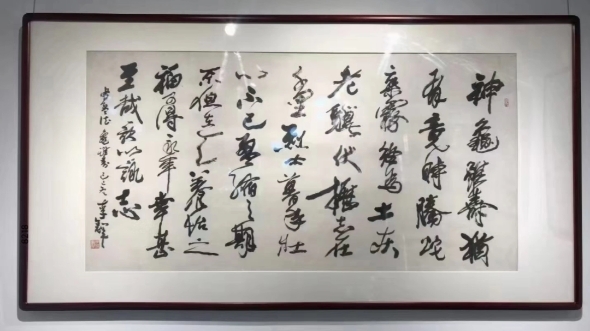 神龜雖壽猶
有竟時騰蛇
乘霧終為土灰
老驥伏櫪志在
千里烈士暮年壯
心不已盈縮之期
不但在天養怡之
福可得永年幸甚
至哉歌以詠志
曹孟德龜雖壽